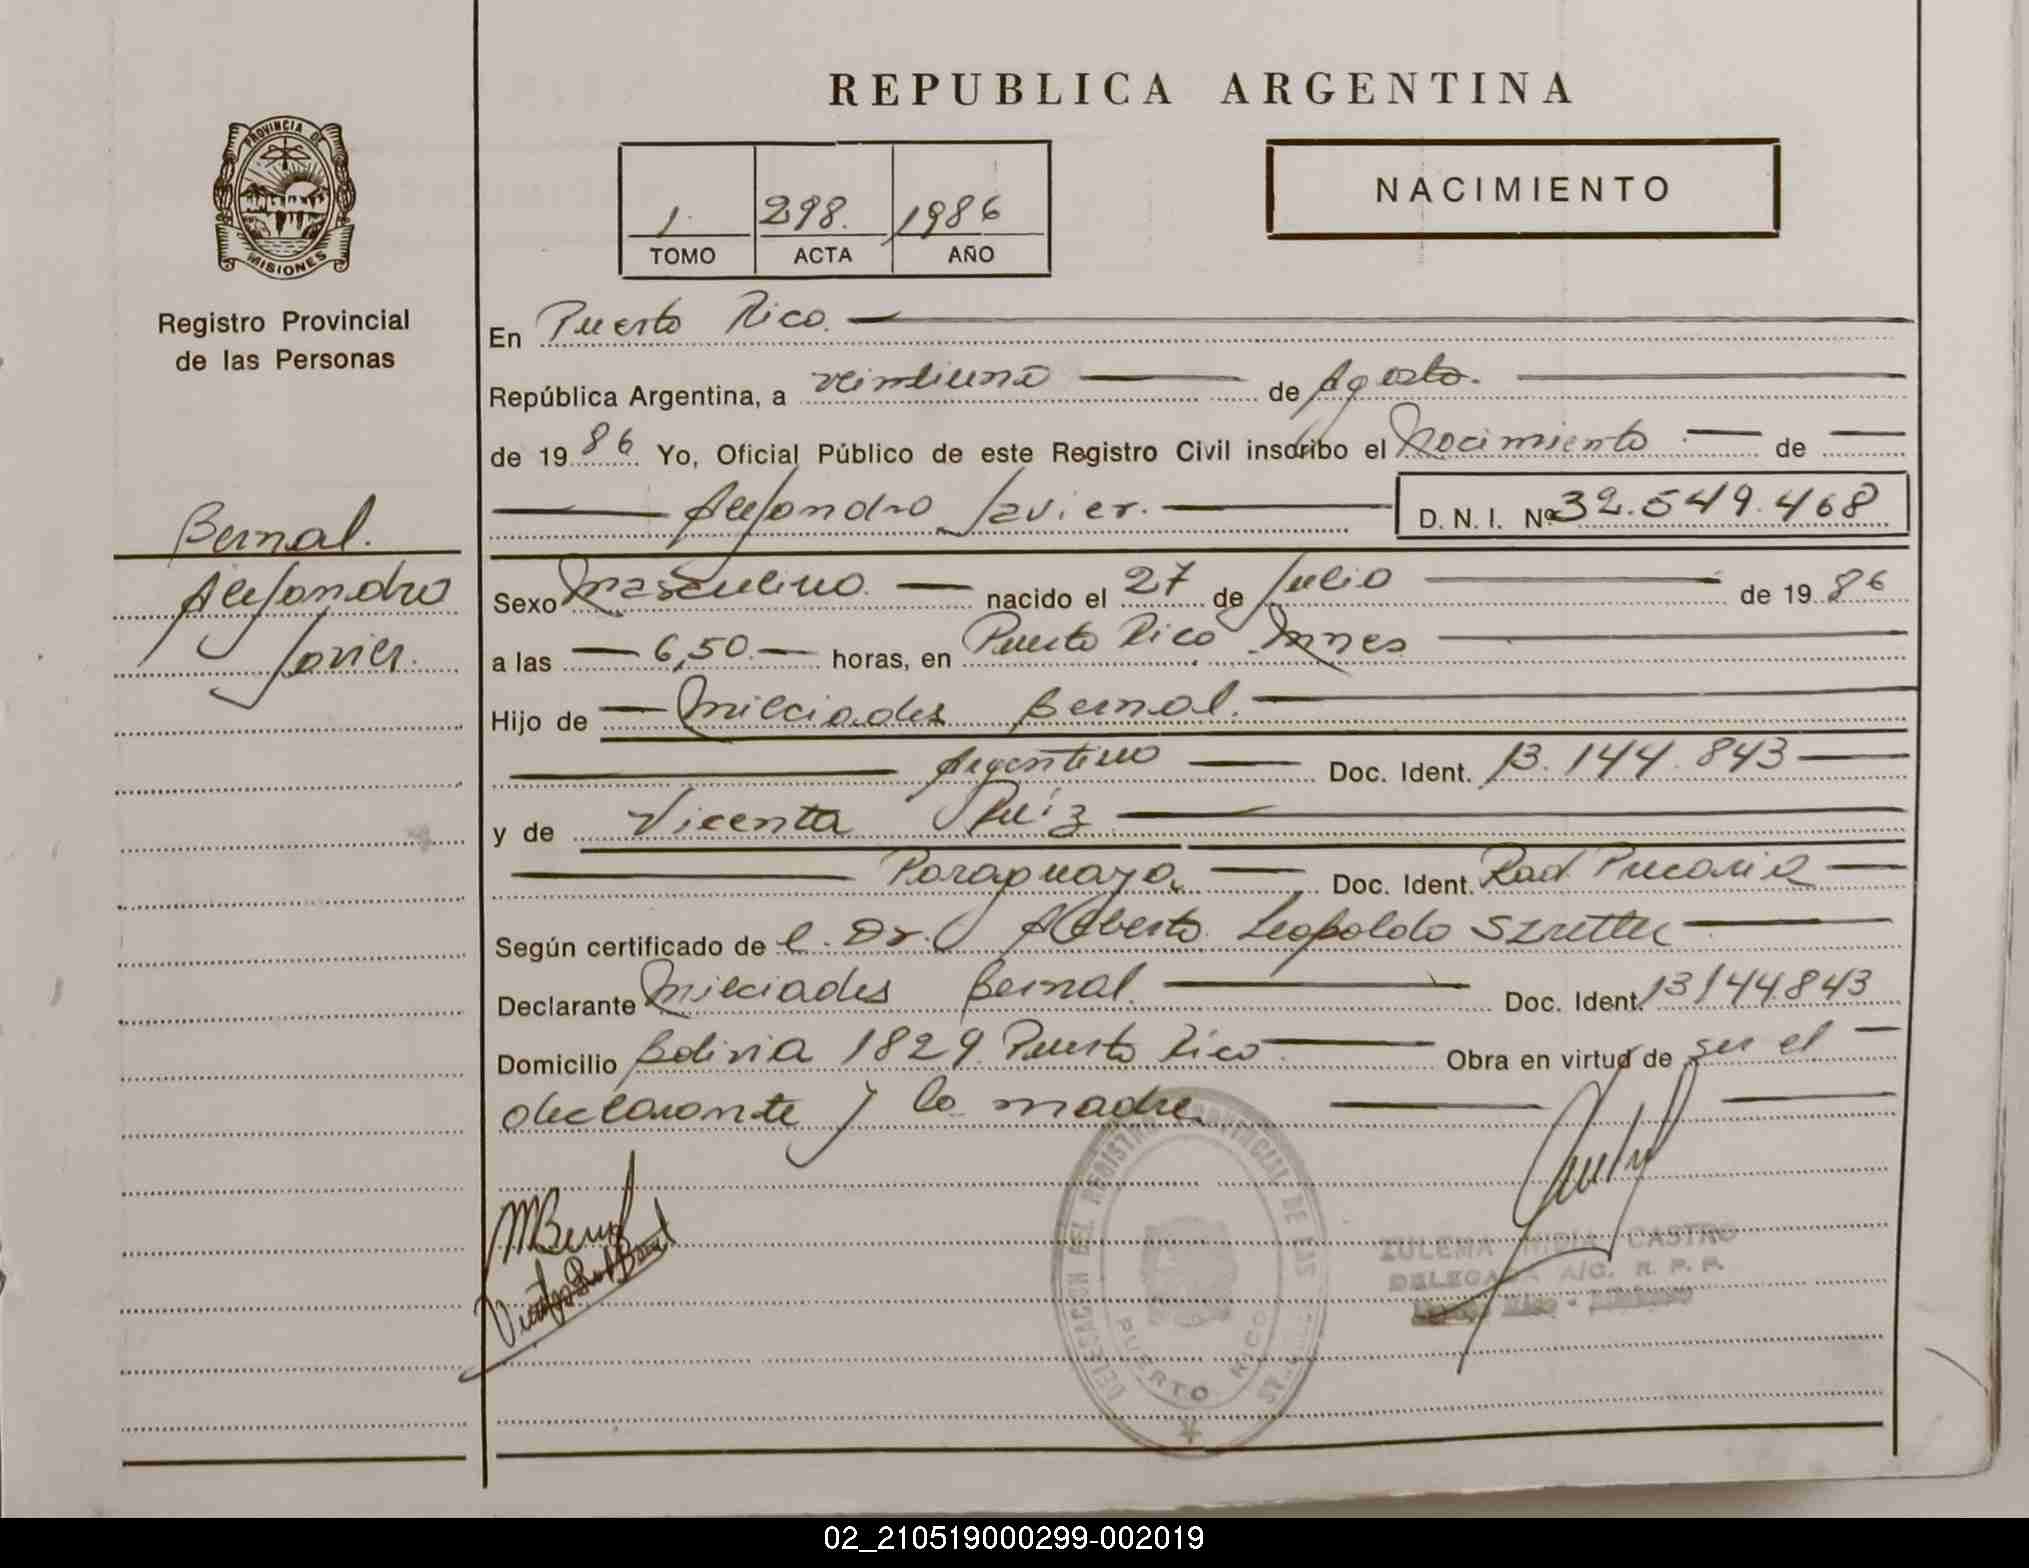 REPUBLICA ARGENTINA
PROVINCIA DE
MISIONES
Registro Provincial
de las Personas
1. 298. 1986
TOMO ACTA AÑO
NACIMIENTO
Bernal.
Alejandro
Javier.
En Puerto Rico.
República Argentina, a veintiuno de Agosto.
de 1986 Yo, Oficial Público de este Registro Civil inscribo el Nacimiento de
Alejandro Javier. D. N. I. Nº 32.549.468
Sexo Masculino. nacido el 27 de Julio de 1986
a las 6,50. horas, en Puerto Rico Mnes
Hijo de Milciades Bernal.
Argentino Doc. Ident. 13.144.843
y de Vicenta Ruíz
Paraguaya Doc. Ident. Rad Precaria
Según certificado de e. Dr. Alberto Leopoldo Szretter
Declarante Milciades Bernal. Doc. Ident. 13144843
Domicilio Bolivia 1829 Puerto Rico. Obra en virtud de ser el
declarante y la madre
MBernal
DELEGACION DEL REGISTRO PROVINCIAL DE LAS
PUERTO RICO
ZULEMA CASTRO
DELEGADA A/C. R. P. P.
02_210519000299-002019